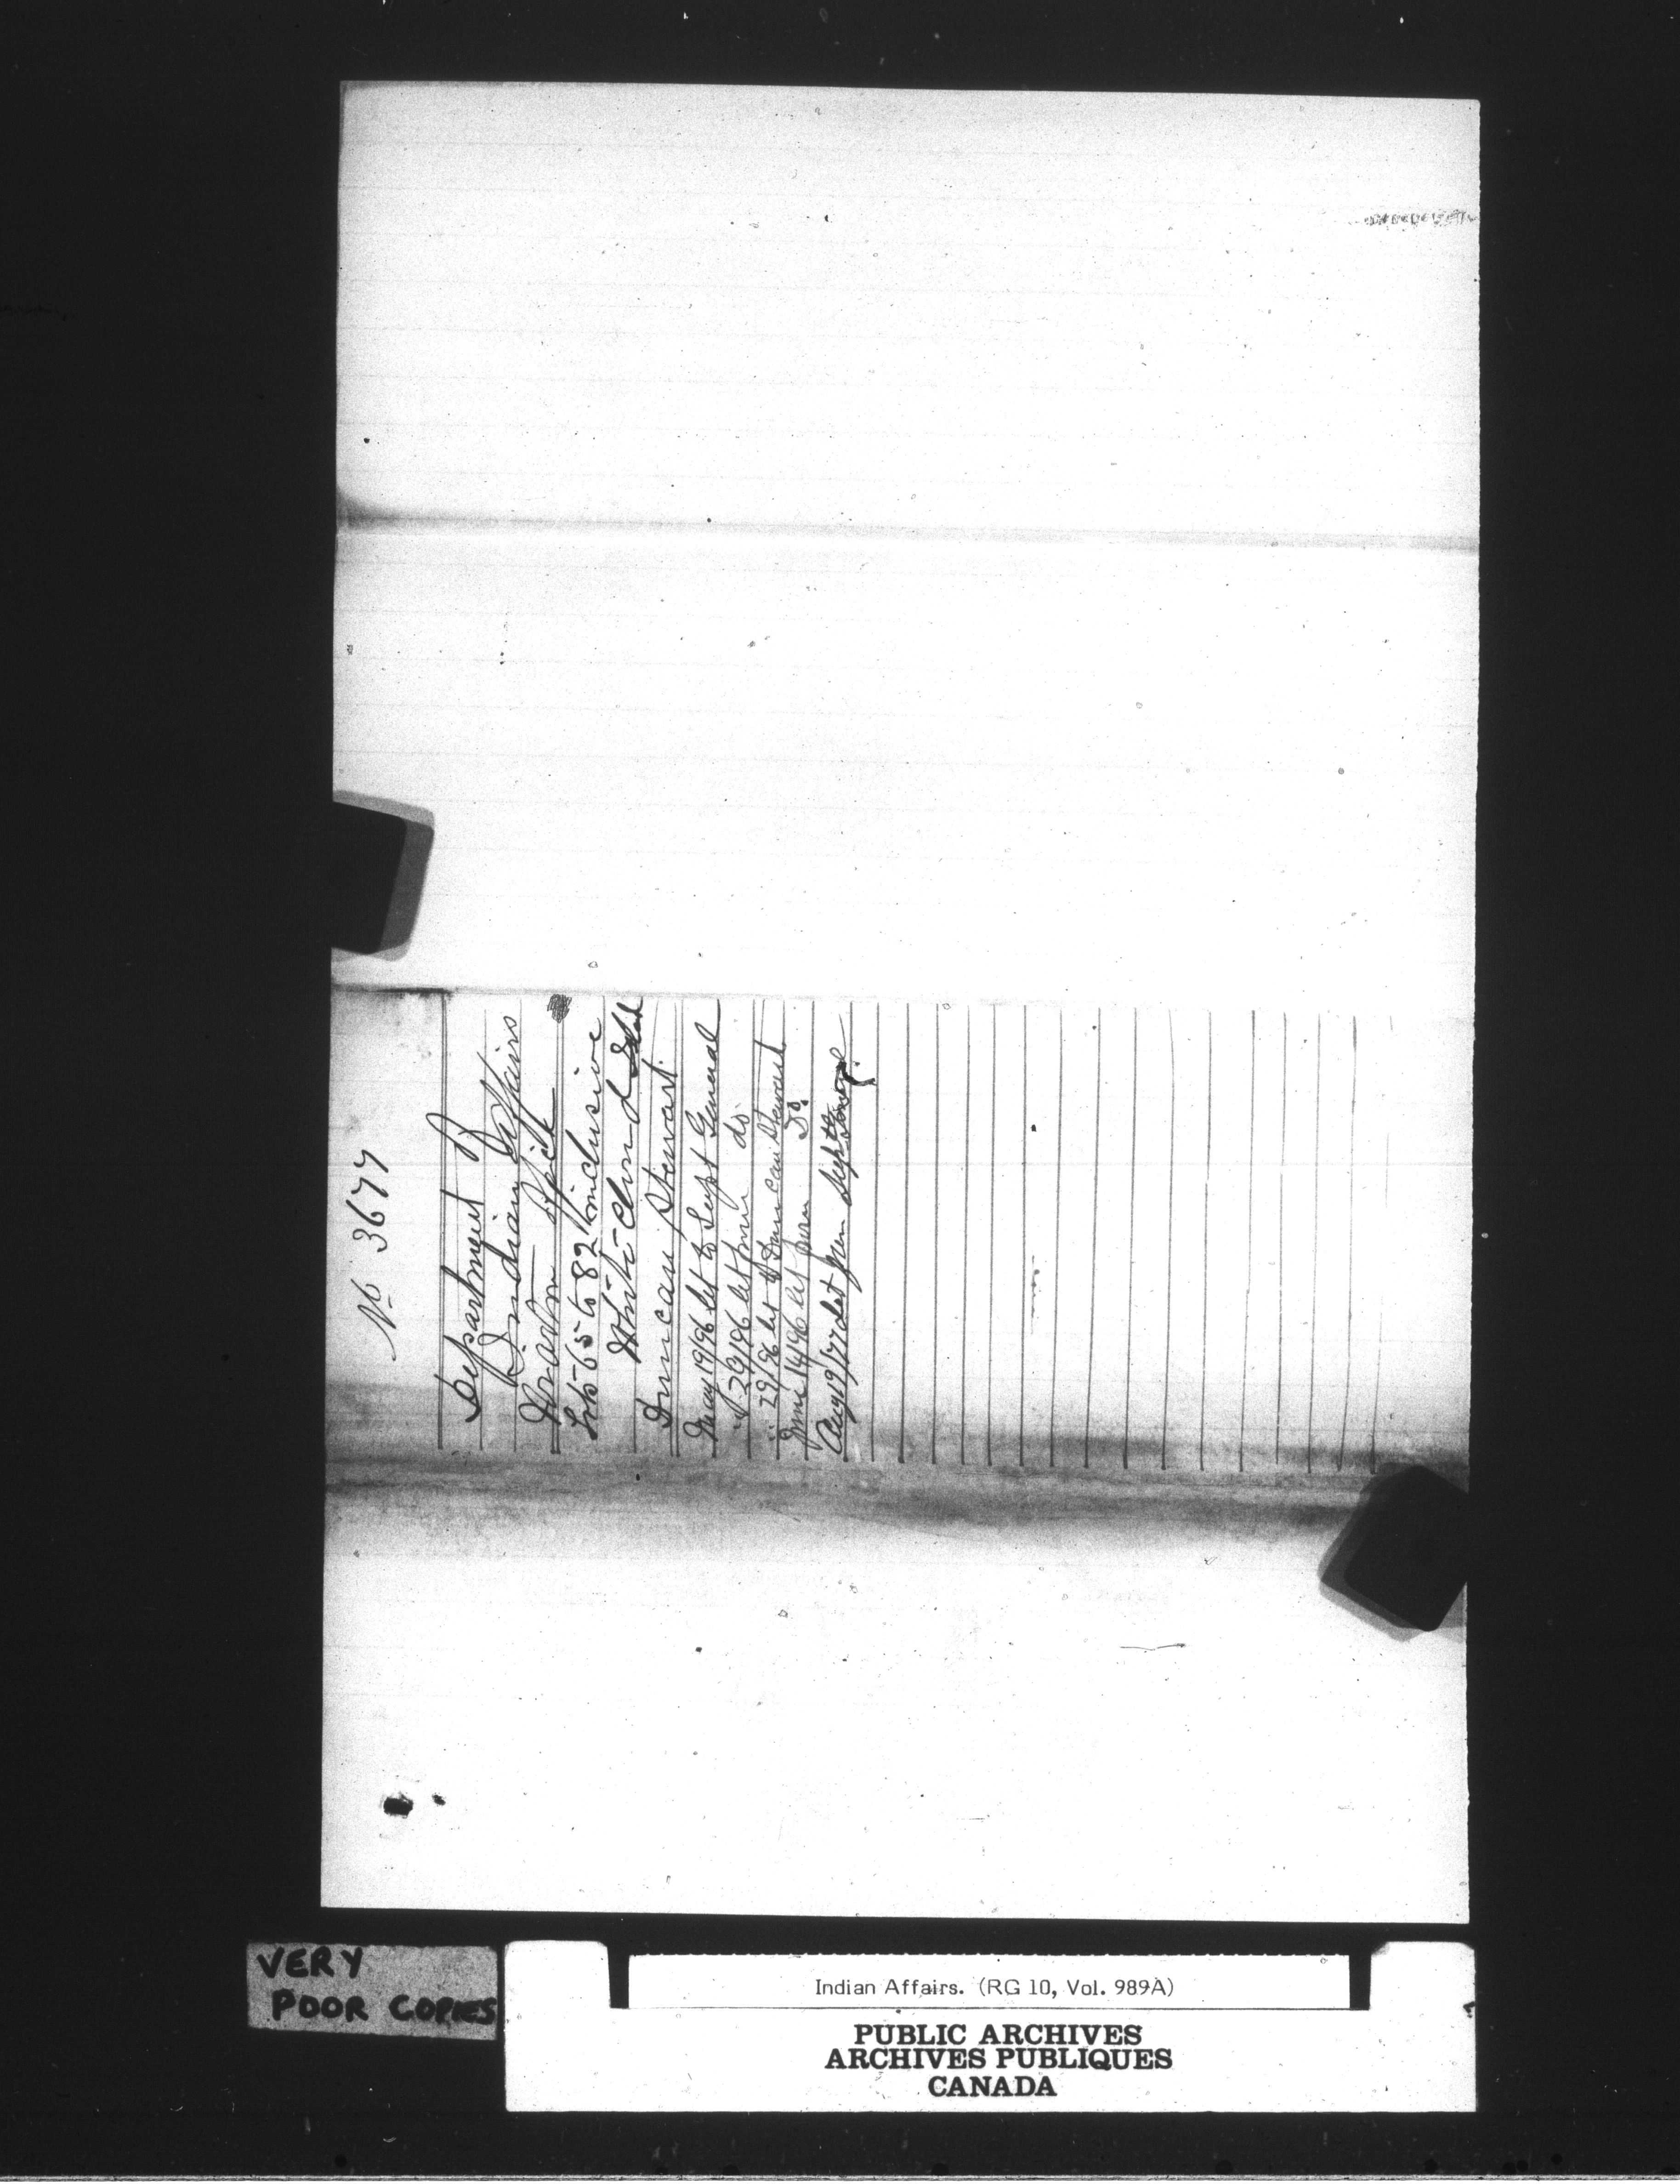 No 3677
Department of
Indian Affairs
Lots 65 to 82 inclusive
White Cloud Isld
Duncan Stewart
May 19/96 let to Supt General
" 29/96 let from do
" 29/96 let to Duncan Stewart
June 14/96 let from Do.
Aug 19/77 Let from Supt General
VERY
POOR COPIES
Indian Affairs. (RG 10, Vol. 989A)
PUBLIC ARCHIVES
ARCHIVES PUBLIQUES
CANADA